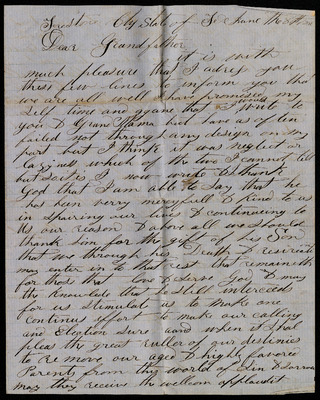 City State of
Dear Grandfather
it is with
much pleasure that I adress you
these few lines to inform you that
we are all well I have promised my
self time and again that I would write to
you & Grand Mama but have as often
failed not through any design on my
part but I think it was neglect or
Lazyness which of the two I cannot tell
but so it is I now write to thank
God that I am able to say that he
has been very mercyfull & kind to us
in sparing our lives & continuing to
us our reason & above all we should
thank him for the gift of his Son
that we through his Death &
may enter in to that rest that remaineth
for those that love & serve God & may
the knowledge that he still interceeds
for us stimulate us to make one
continus effort to make our calling
and Election sure and when it shal
pleas the great ruller of our destinies
to remove our aged & highly favored
Parents from this world of Sin & Sorrow
may they receive the wellcom applaudit